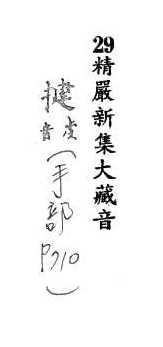 29精嚴新集大藏音
揵虔音(手部P710)